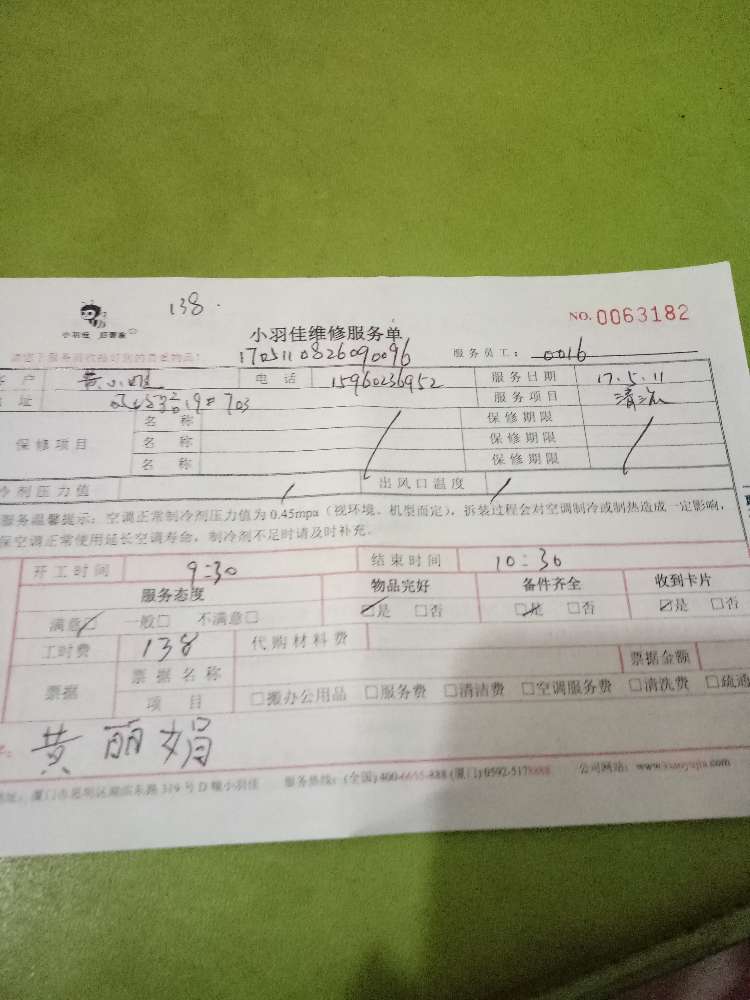 138.
NO.0063182
小羽佳 好管家
小羽佳维修服务单
170511082609 0096
服务员工: 0016
客户 电话 15960236952 服务日期 17.5.11
地址 703 服务项目 清洗
保修项目 名称 保修期限
名称 保修期限
名称 保修期限
冷剂压力值 出风口温度
服务温馨提示:空调正常制冷剂压力值为0.45mpa(视环境、机型而定),拆装过程会对空调制冷或制热造成一定影响,
保空调正常使用延长空调寿命,制冷剂不足时请及时补充。
开工时间 9:30 结束时间 10:30
服务态度 物品完好 备件齐全 收到卡片
满意☑ 一般□ 不满意□ ☑是 □否 ☑是 □否 ☑是 □否
工时费 138 代购材料费
票据 票据名称 票据金额
项目 □搬办公用品 □服务费 □清洁费 □空调服务费 □清洗费 □疏通
黄丽娟
地址:厦门市思明区湖滨东路319号D幢小羽佳 服务热线:(全国)400-6655-888(厦门)0592-5178888 公司网站:www.xiaoyujia.com